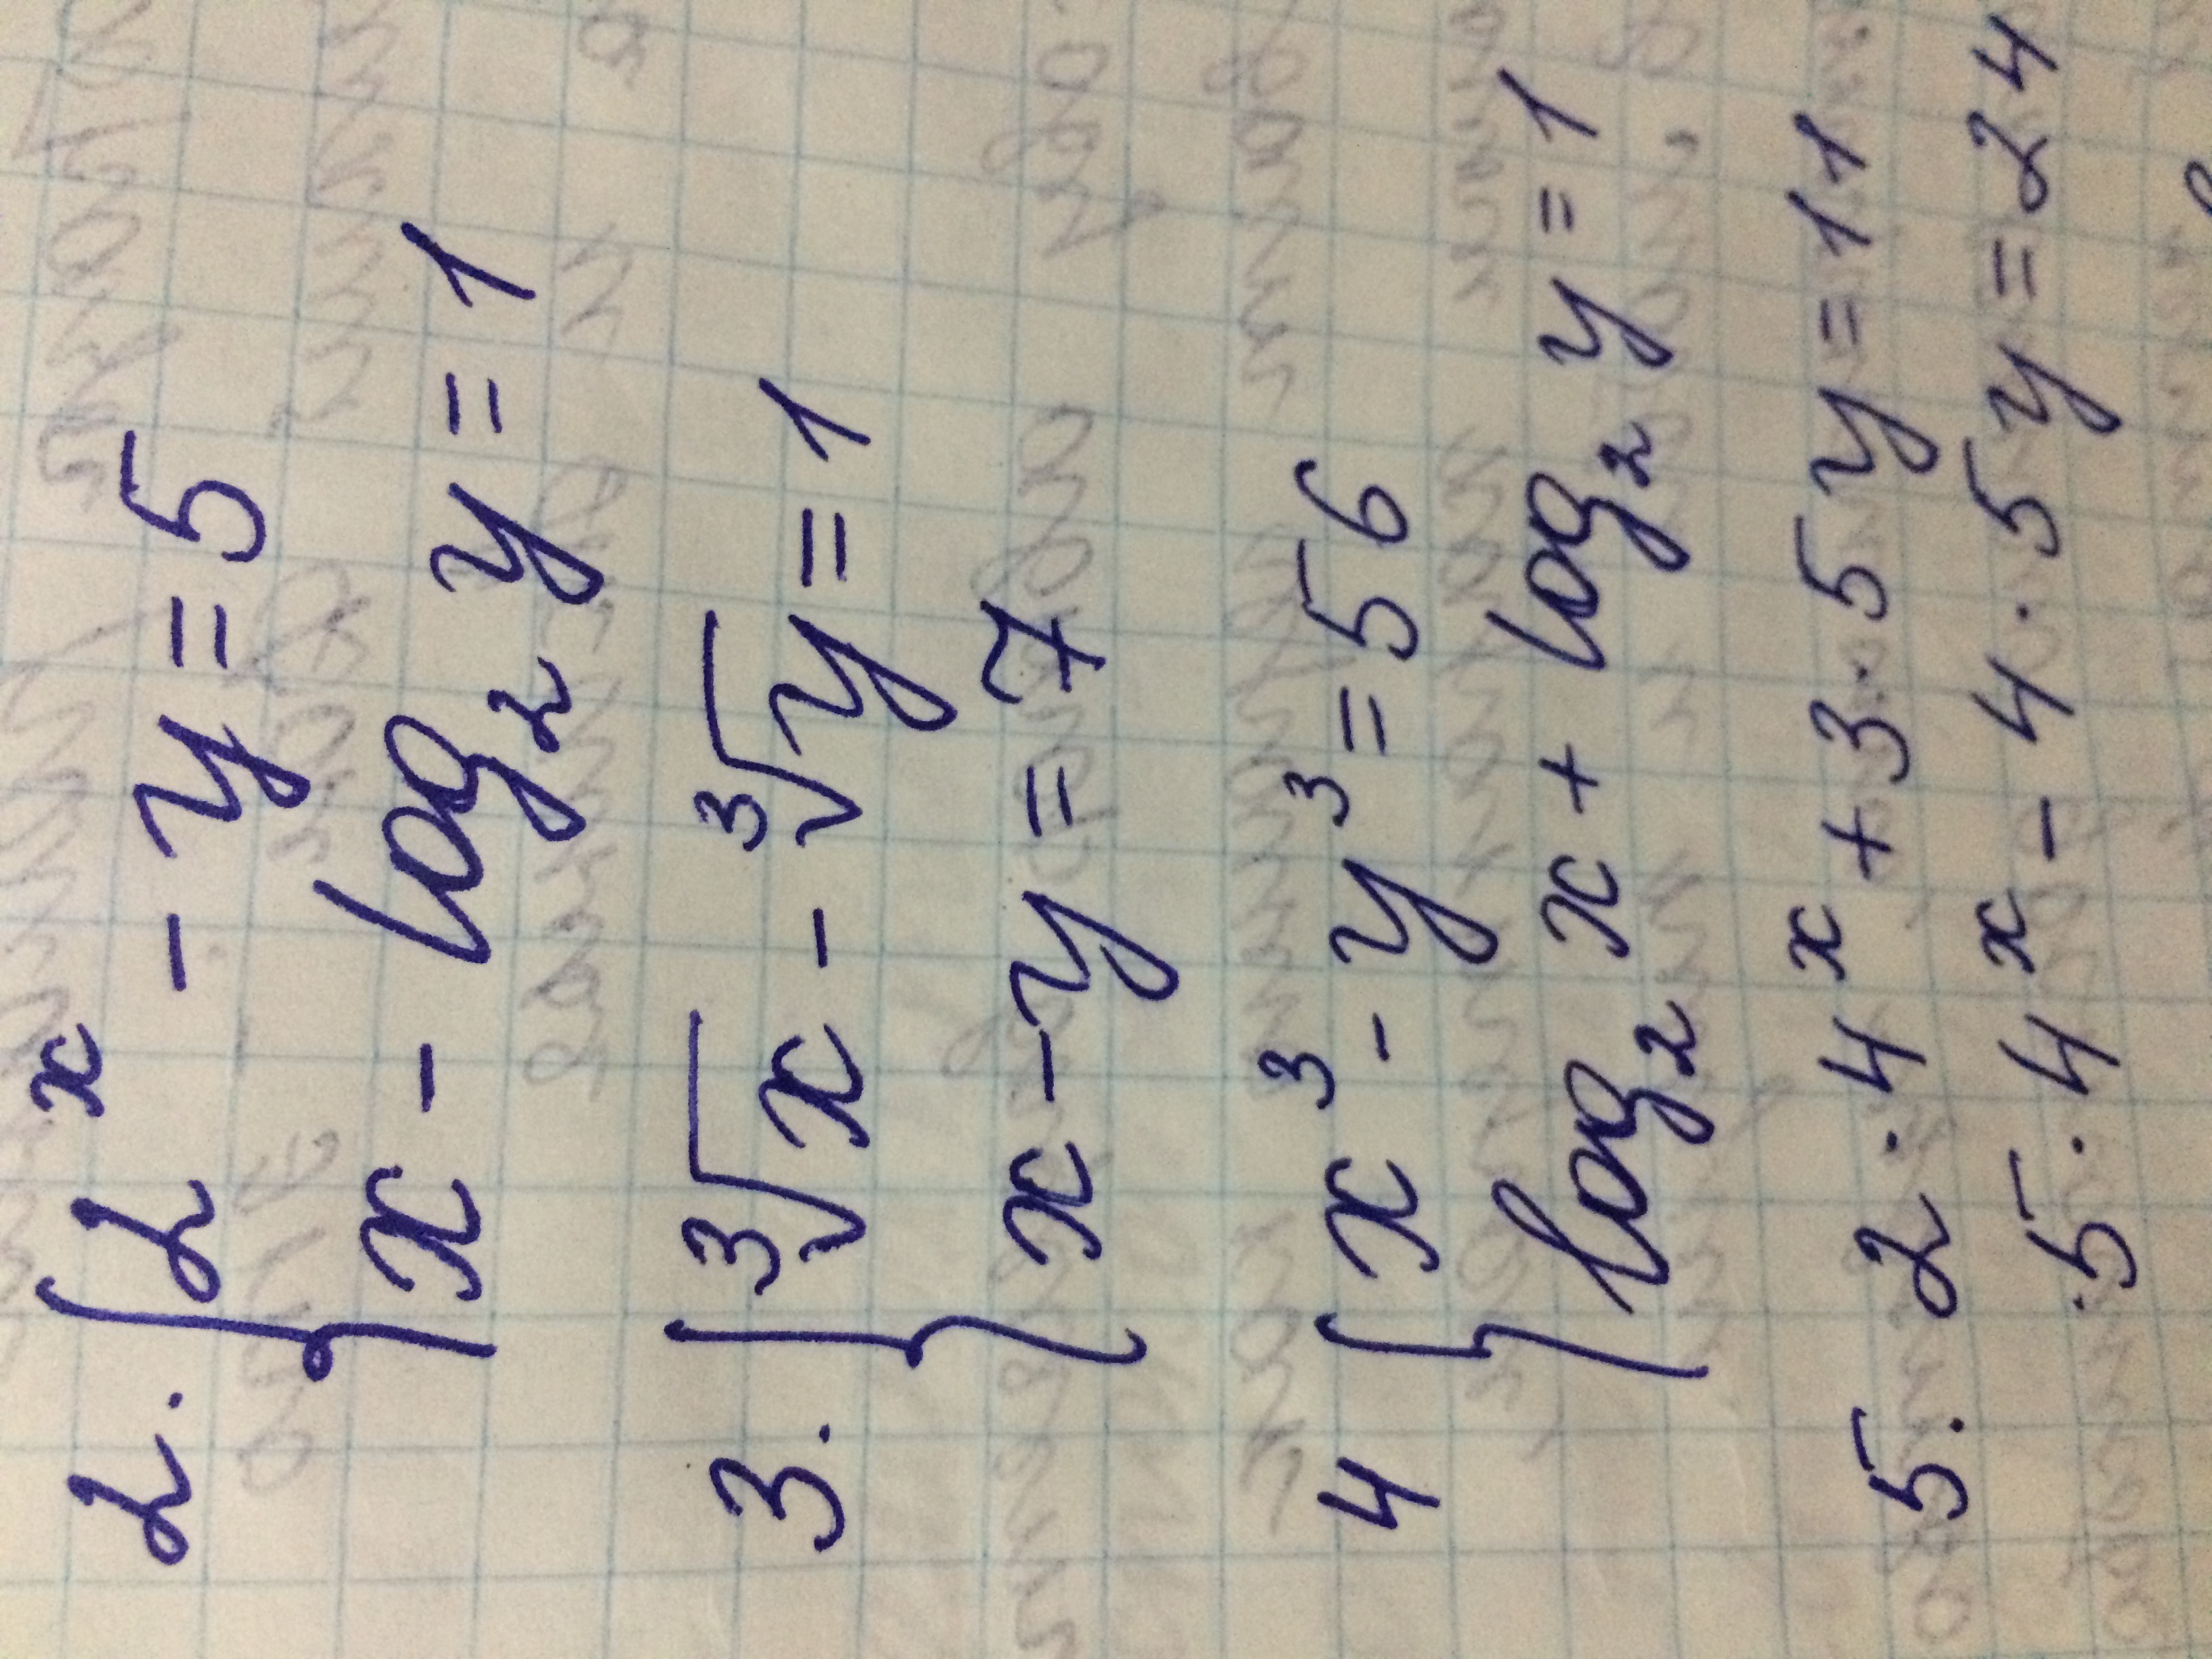 2. { 2ˣ - y = 5
x - log₂ y = 1
3. { ³√x - ³√y = 1
x - y = 7
4 { x³ - y³ = 56
log₂ x + log₂ y = 1
5. 2 · 4ˣ + 3 · 5y = 11
5 · 4ˣ - 4 · 5y = 24